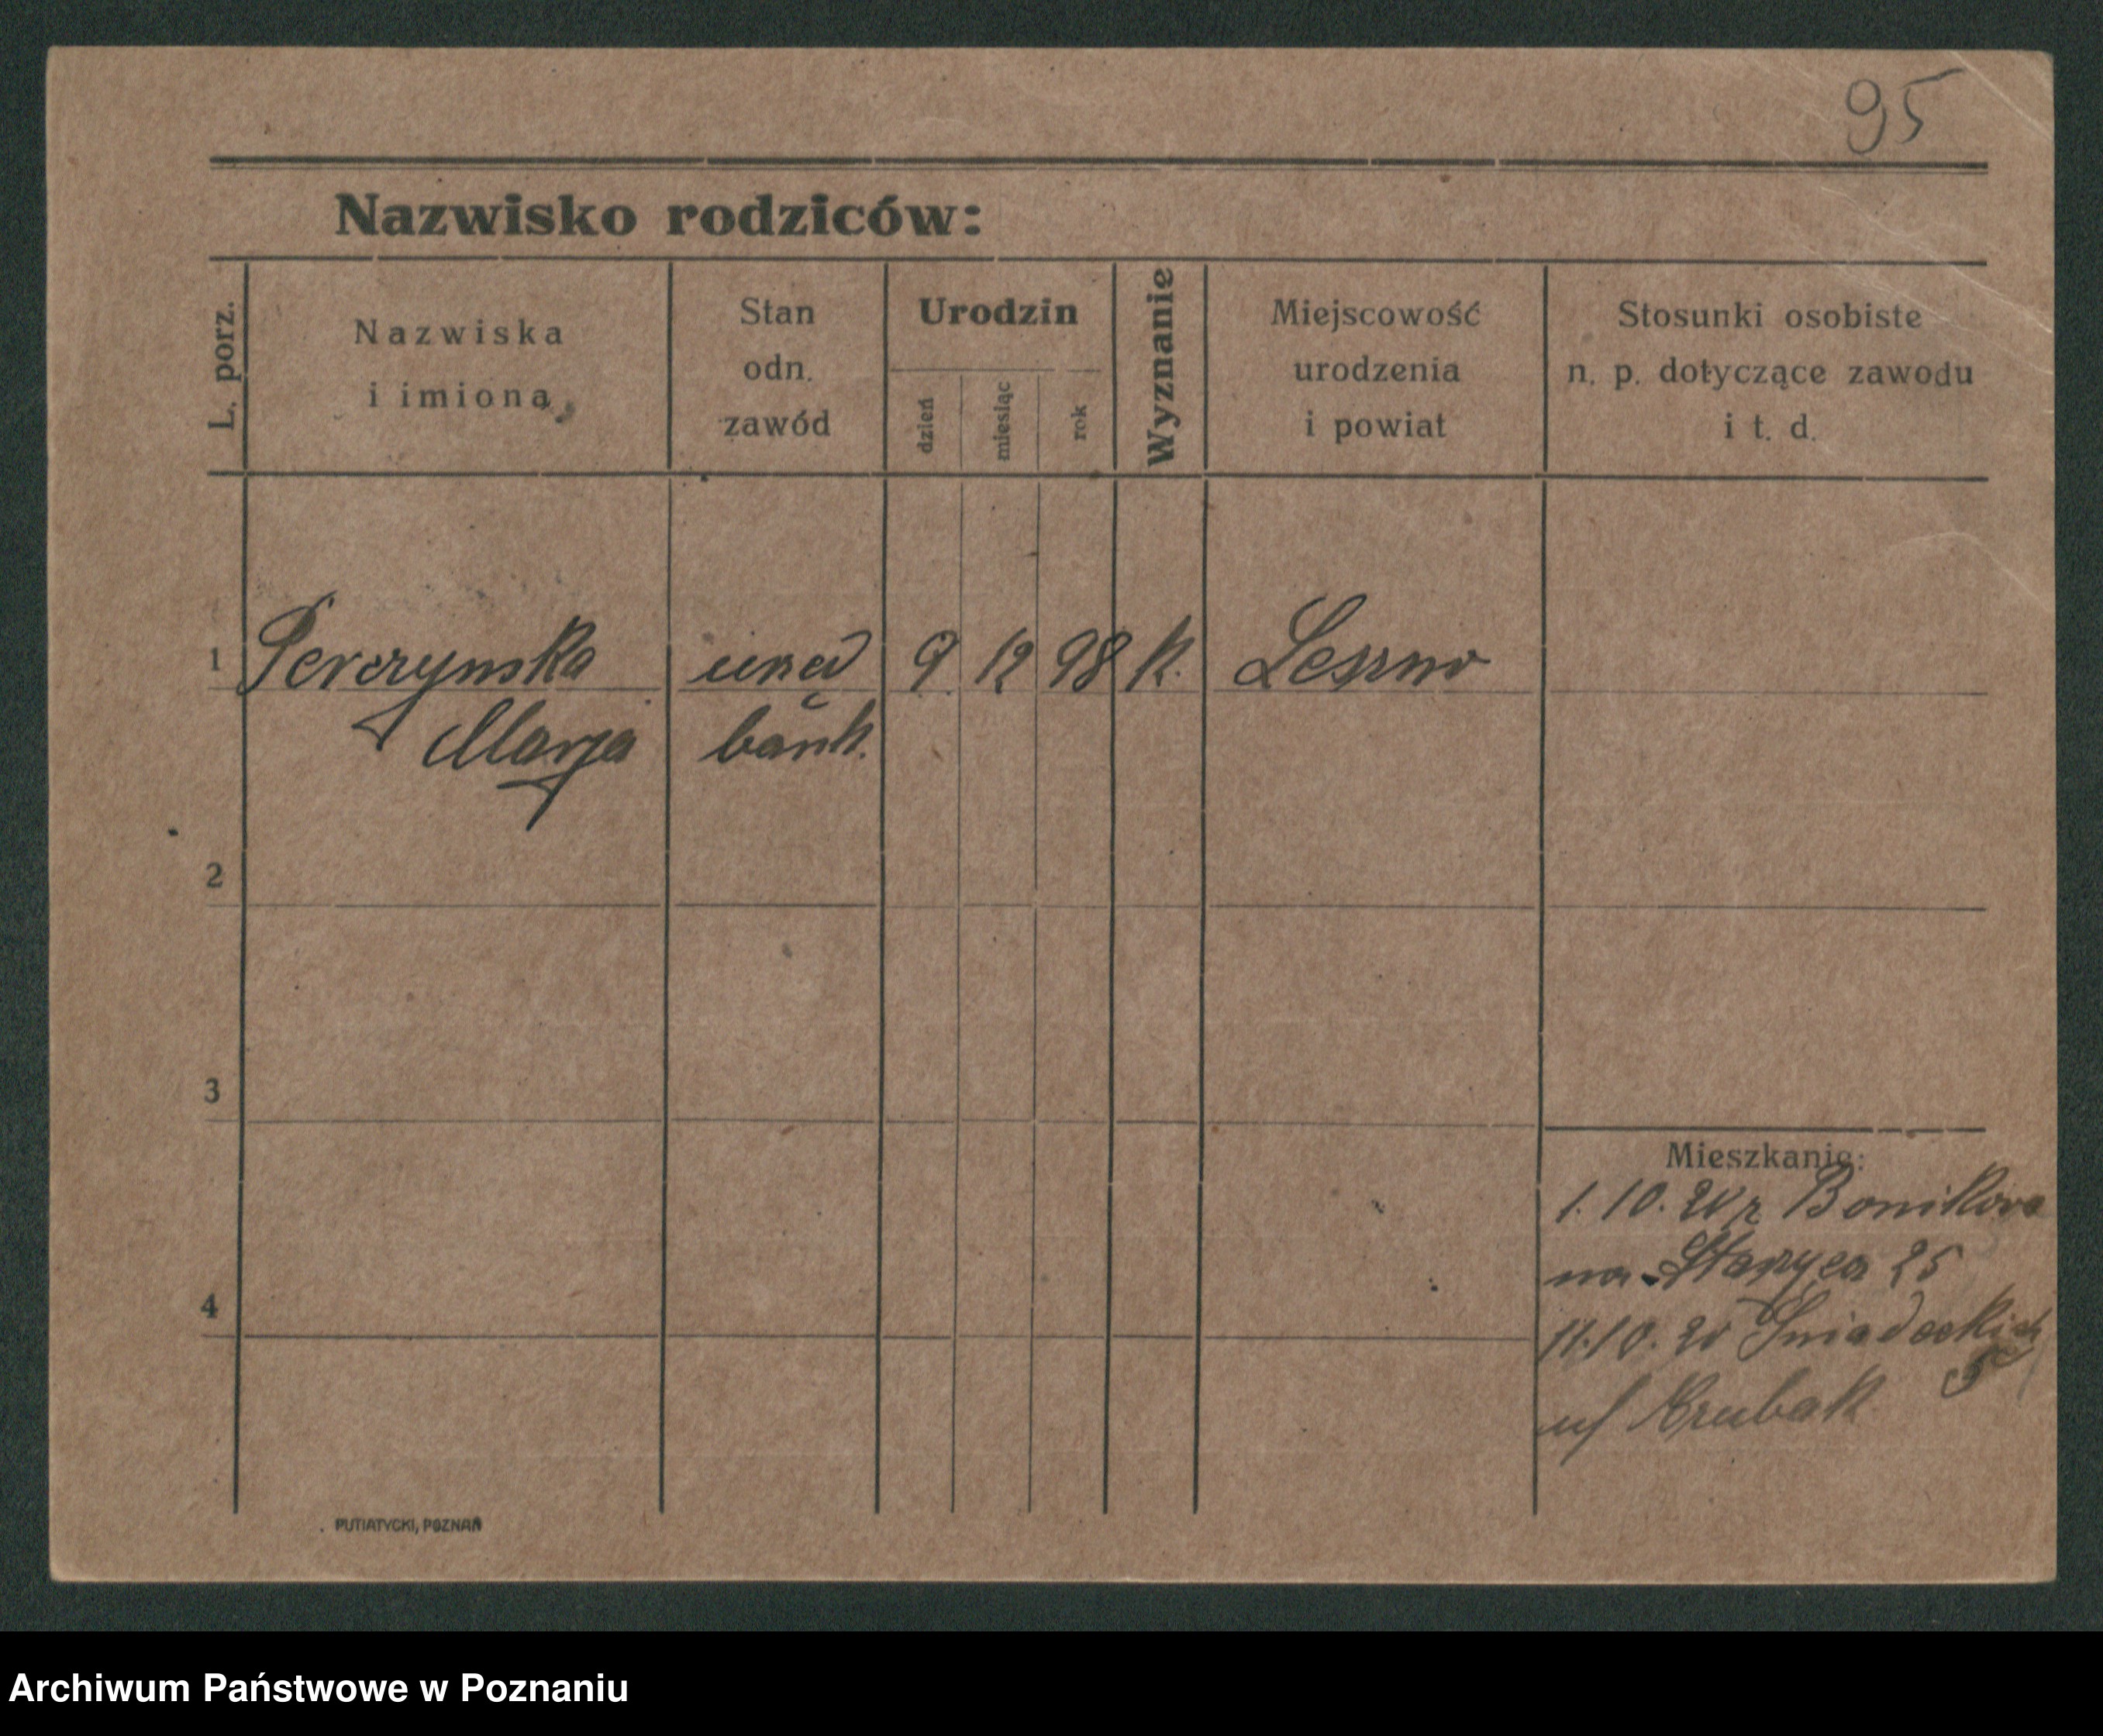 95
Nazwisko rodziców:
L. porz.
Nazwiska
i imiona
Stan
odn.
zawód
Urodzin
dzień
miesiąc
rok
Wyznanie
Miejscowość
urodzenia
i powiat
Stosunki osobiste
n. p. dotyczące zawodu
i t. d.
1 Perczynska urzed 9. 12 98 k. Leszno
Marja bank.
2
3
Mieszkanie:
1. 10. 20 z Bonikowa
na 25
4
11.10. 20 Śniadeckich
5
PUTIATYCKI, POZNAŃ
Archiwum Państwowe w Poznaniu